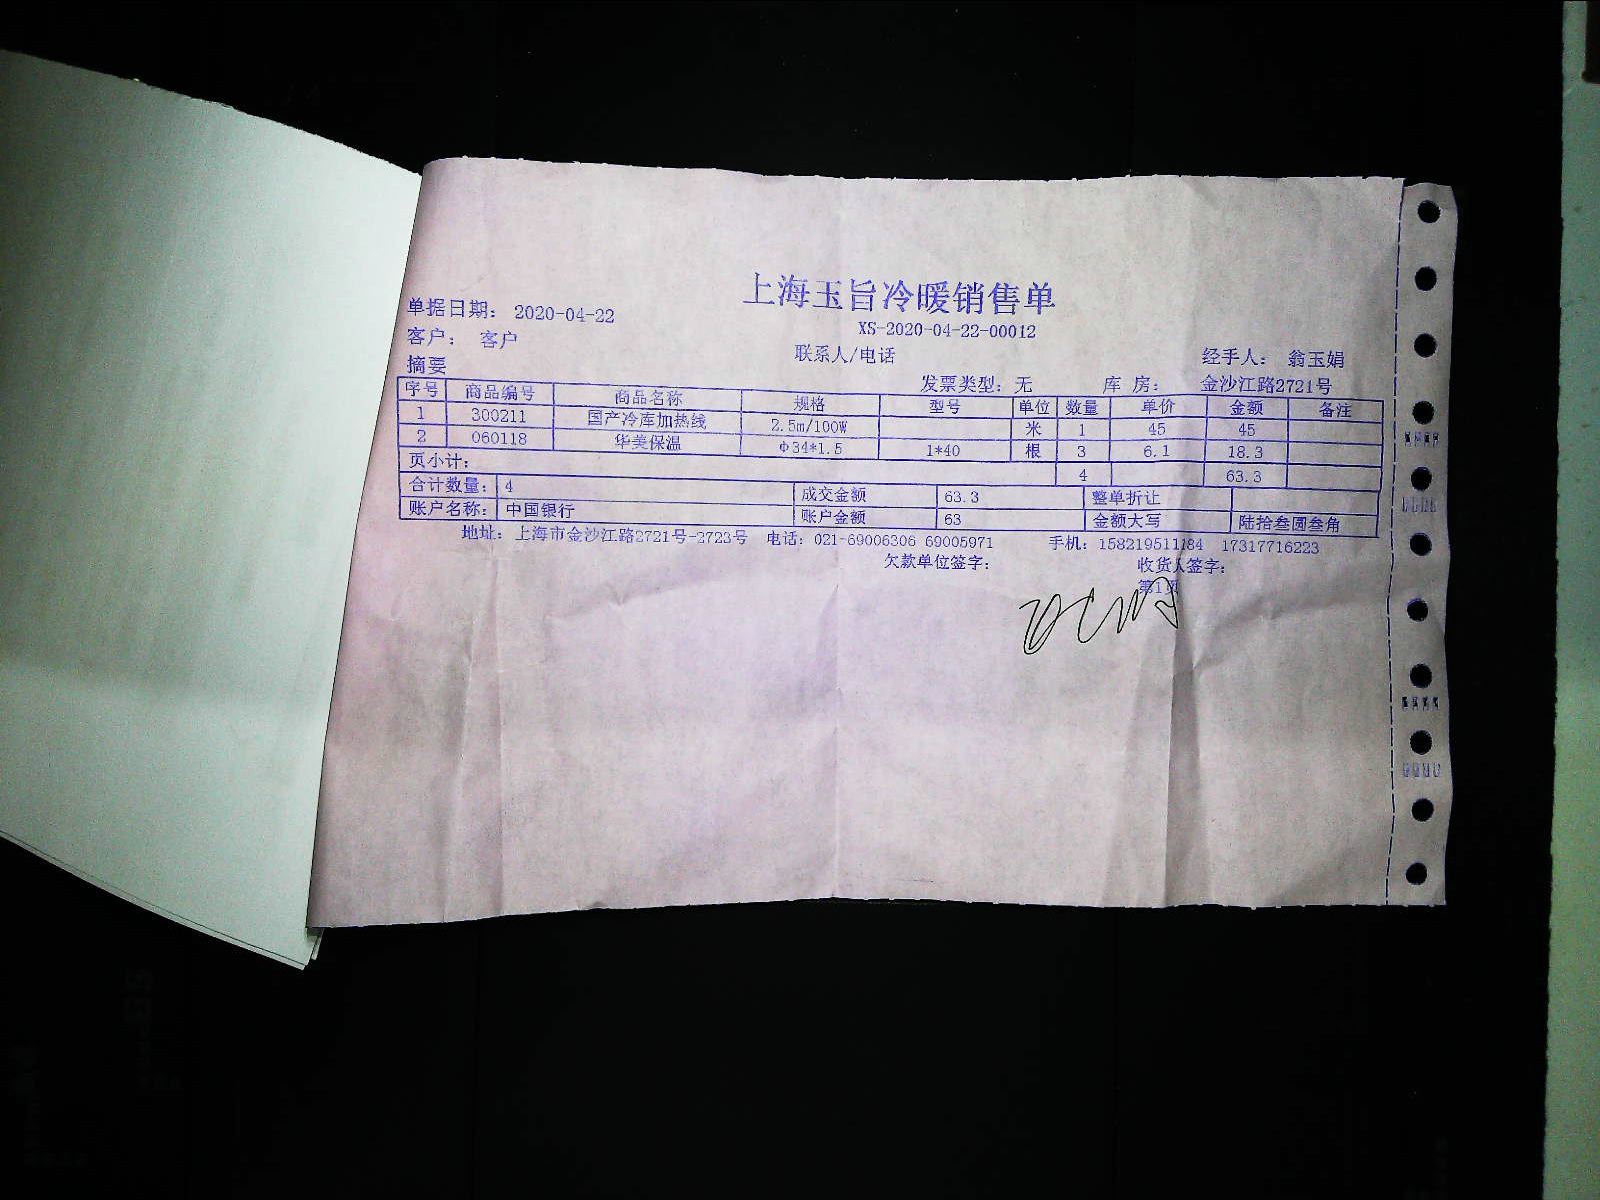 上海玉旨冷暖销售单
单据日期： 2020-04-22
XS-2020-04-22-00012
客户： 客户 联系人/电话 经手人： 翁玉娟
摘要 发票类型：无 库 房： 金沙江路2721号
序号 商品编号 商品名称 规格 型号 单位 数量 单价 金额 备注
1 300211 国产冷库加热线 2.5m/100W 米 1 45 45
2 060118 华美保温 Φ34*1.5 1*40 根 3 6.1 18.3
页小计： 4 63.3
合计数量： 4 成交金额 63.3 整单折让
账户名称： 中国银行 账户金额 63 金额大写 陆拾叁圆叁角
地址： 上海市金沙江路2721号-2723号 电话：021-69006306 69005971 手机：158219511184 17317716223
欠款单位签字： 收货人签字：
第1页